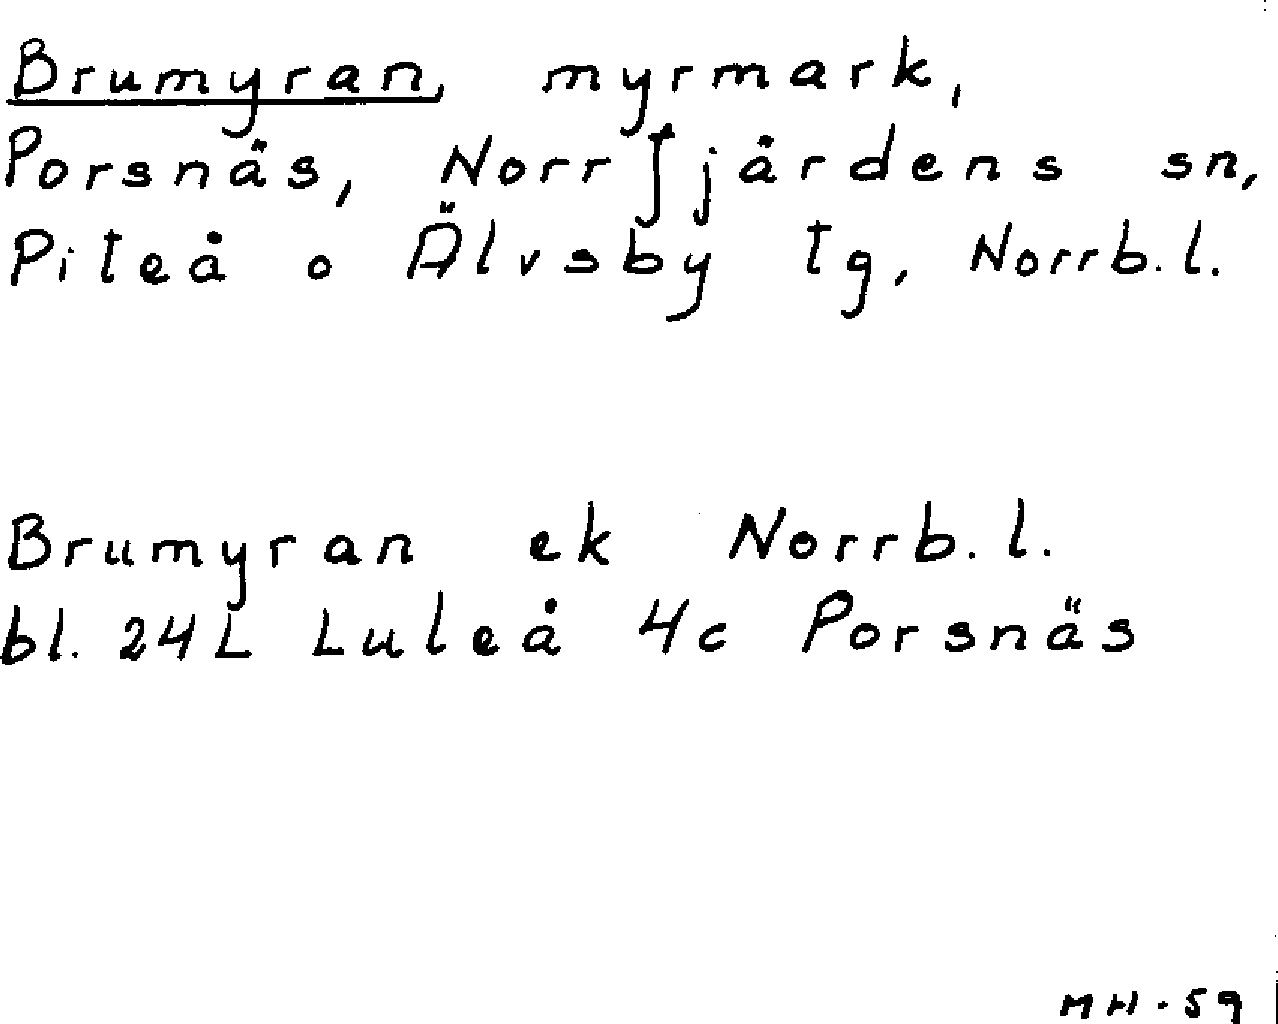 Brumyran, myrmark,
Porsnäs, Norrfjärdens sn,
Piteå o Älvsby tg, Norrb.l.
Brumyran ek Norrb.l.
bl. 24L Luleå 4c Porsnäs
MH.59